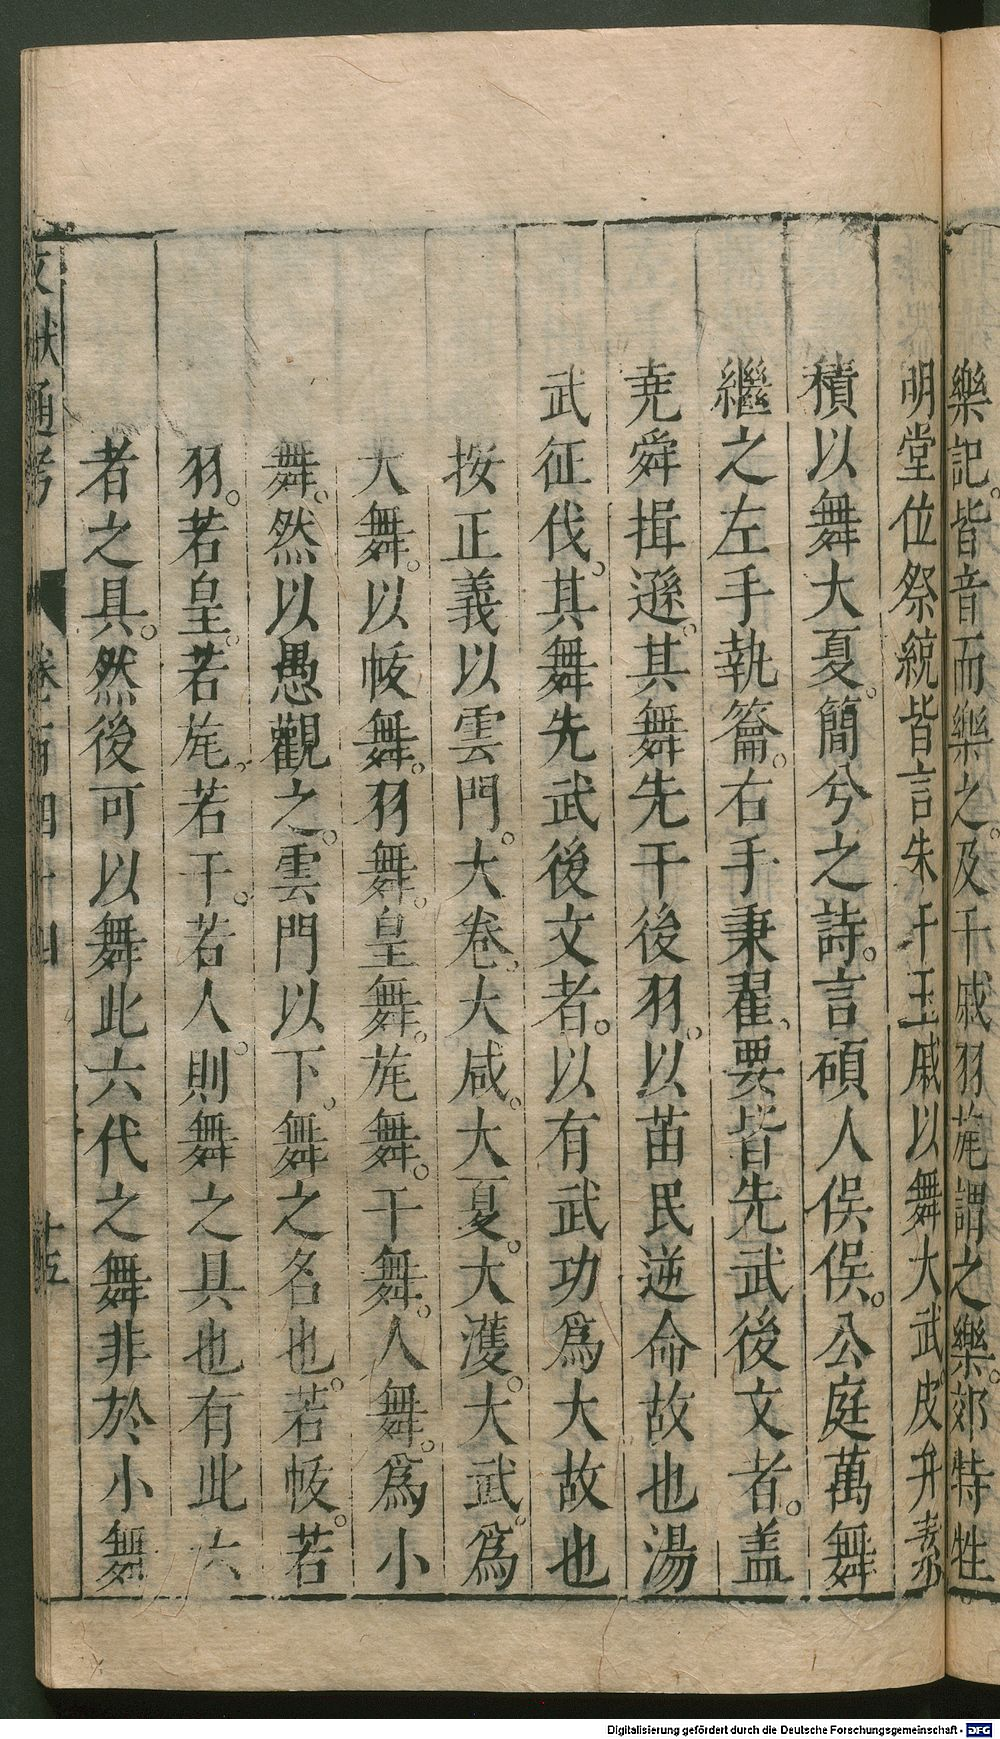 樂記。皆音而樂之。及干戚羽旄謂之樂。郊特牲
明堂位祭統皆言朱干玉戚以舞大武皮弁素
積以舞大夏。簡兮之詩。言碩人俣俣。公庭萬舞
繼之左手執籥。右手秉翟。要皆先武後文者。盖
尭舜揖遜。其舞先干後羽。以苗民逆命故也湯
武征伐。其舞先武後文者。以有武功爲大故也
按正義以雲門。大卷。大咸。大夏。大濩。大武。爲
大舞。以帗舞。羽舞。皇舞。旄舞。干舞。人舞。爲小
舞。然以愚觀之。雲門以下。舞之名也。若帗。若
羽。若皇。若旄。若干。若人。則舞之具也有此六
者之具。然後可以舞此六代之舞非於小舞
文獻通考 卷百四十四 廿五
Digitalisierung gefördert durch die Deutsche Forschungsgemeinschaft - DFG